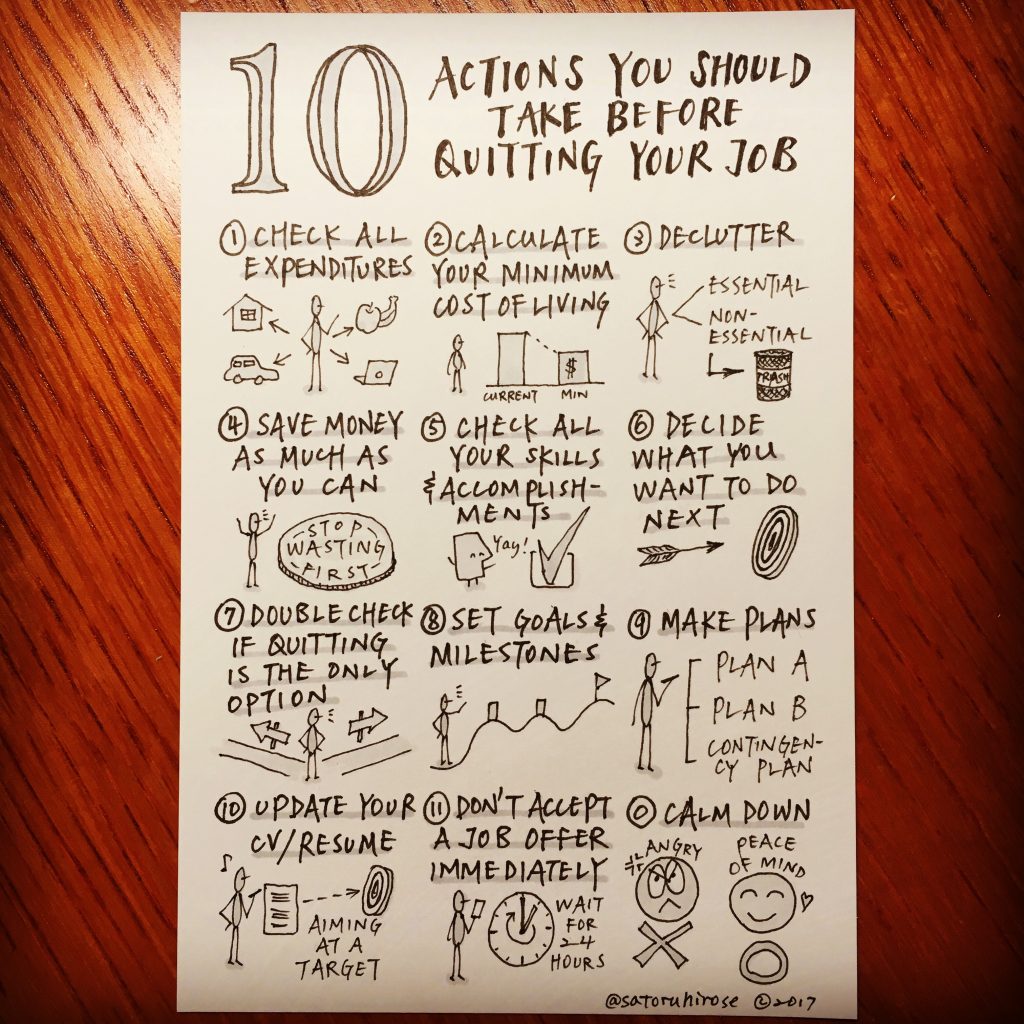 10
ACTIONS YOU SHOULD
TAKE BEFORE
QUITTING YOUR JOB
① CHECK ALL
EXPENDITURES
② CALCULATE
YOUR MINIMUM
COST OF LIVING
$
CURRENT MIN
③ DECLUTTER
ESSENTIAL
NON-
ESSENTIAL
TRASH
④ SAVE MONEY
AS MUCH AS
YOU CAN
STOP
WASTING
FIRST
⑤ CHECK ALL
YOUR SKILLS
& ACCOMPLISH-
MENTS
Yay!
⑥ DECIDE
WHAT YOU
WANT TO DO
NEXT
⑦ DOUBLE CHECK
IF QUITTING
IS THE ONLY
OPTION
⑧ SET GOALS &
MILESTONES
⑨ MAKE PLANS
PLAN A
PLAN B
CONTINGEN-
CY PLAN
⑩ UPDATE YOUR
CV/RESUME
AIMING
AT A
TARGET
⑪ DON'T ACCEPT
A JOB OFFER
IMMEDIATELY
WAIT
FOR
24
HOURS
⓪ CALM DOWN
ANGRY
PEACE
OF MIND
@satoruhirose ©2017